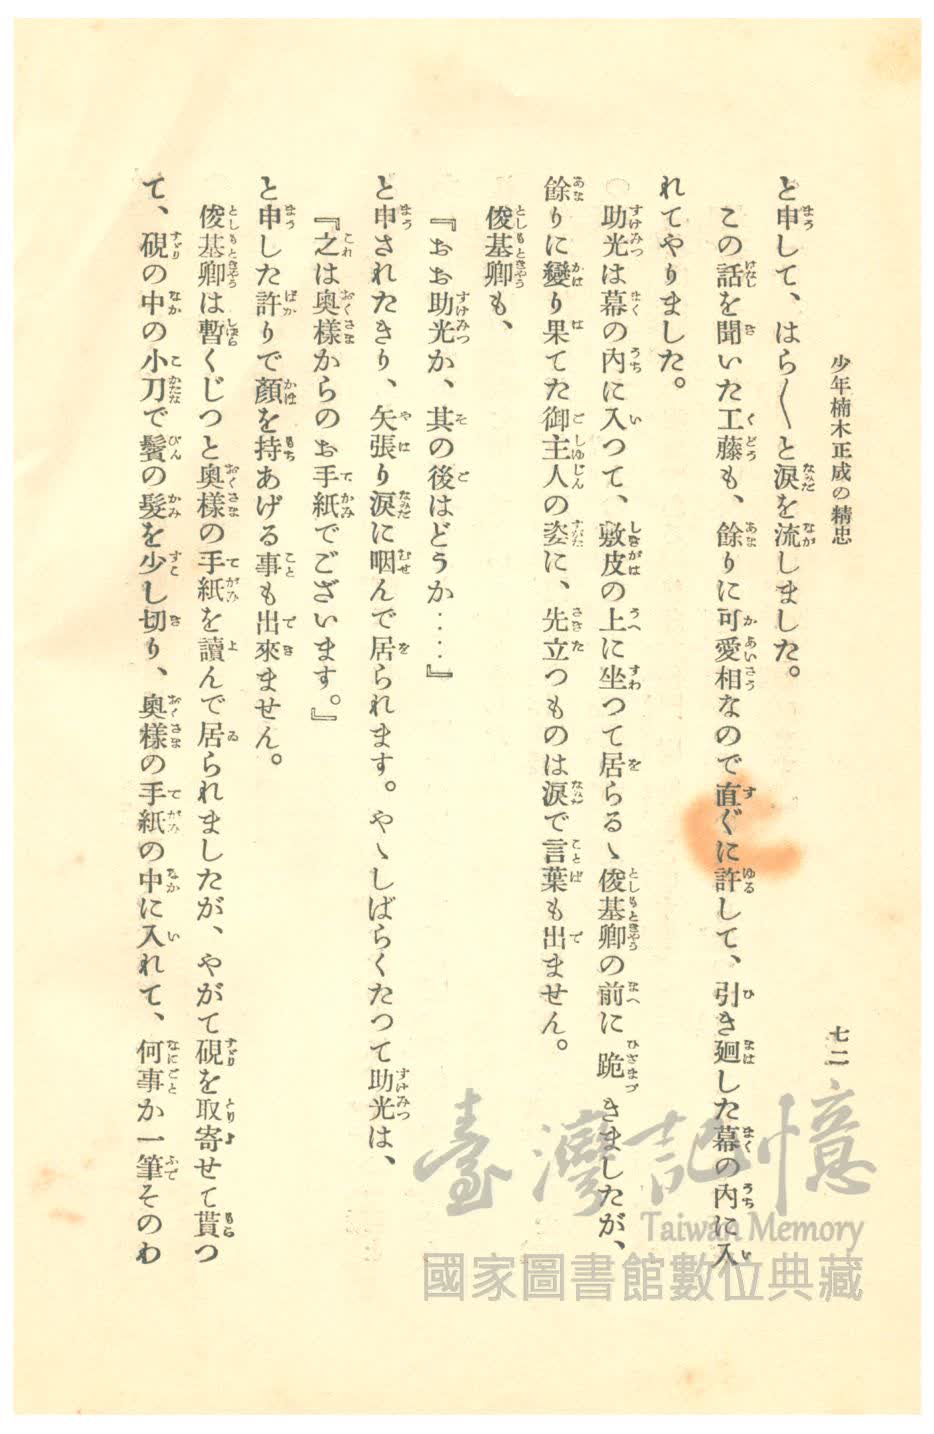 少年楠木正成の精忠
七二
と申して、はら〳〵と涙を流しました。
この話を聞いた工藤も、餘りに可愛相なので直ぐに許して、引き廻した幕の内に入
れてやりました。
助光は幕の内に入つて、敷皮の上に坐つて居らるゝ俊基卿の前に跪きましたが、
餘りに變り果てた御主人の姿に、先立つものは涙で言葉も出ません。
俊基卿も、
『おお助光か、其の後はどうか‥‥』
と申されたきり、矢張り涙に咽んで居られます。やゝしばらくたつて助光は、
『之は奥樣からのお手紙でございます。』
と申した許りで顏を持あげる事も出來ません。
俊基卿は暫くじつと奥樣の手紙を讀んで居られましたが、やがて硯を取寄せて貰つ
て、硯の中の小刀で鬢の髮を少し切り、奥樣の手紙の中に入れて、何事か一筆そのわ
臺灣記憶
Taiwan Memory
國家圖書館數位典藏